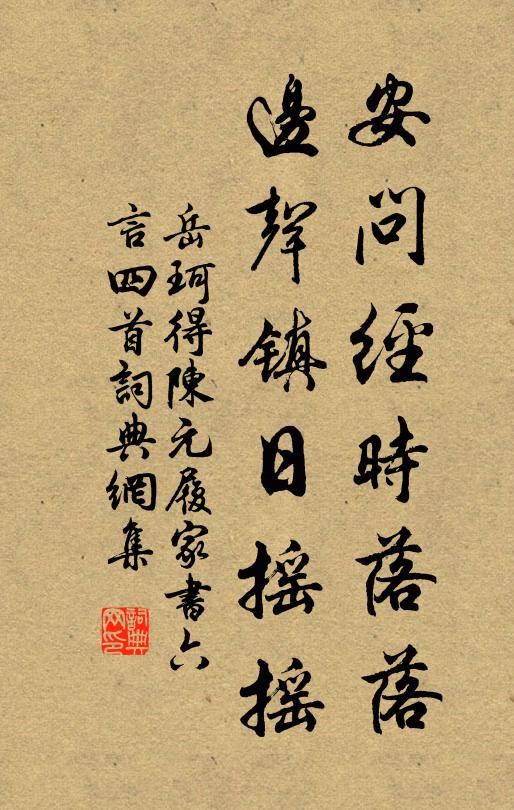 安問經時落落
邊聲鎮日摇摇
岳珂得陳元履家書六
言四首詞典網集
詞典网印